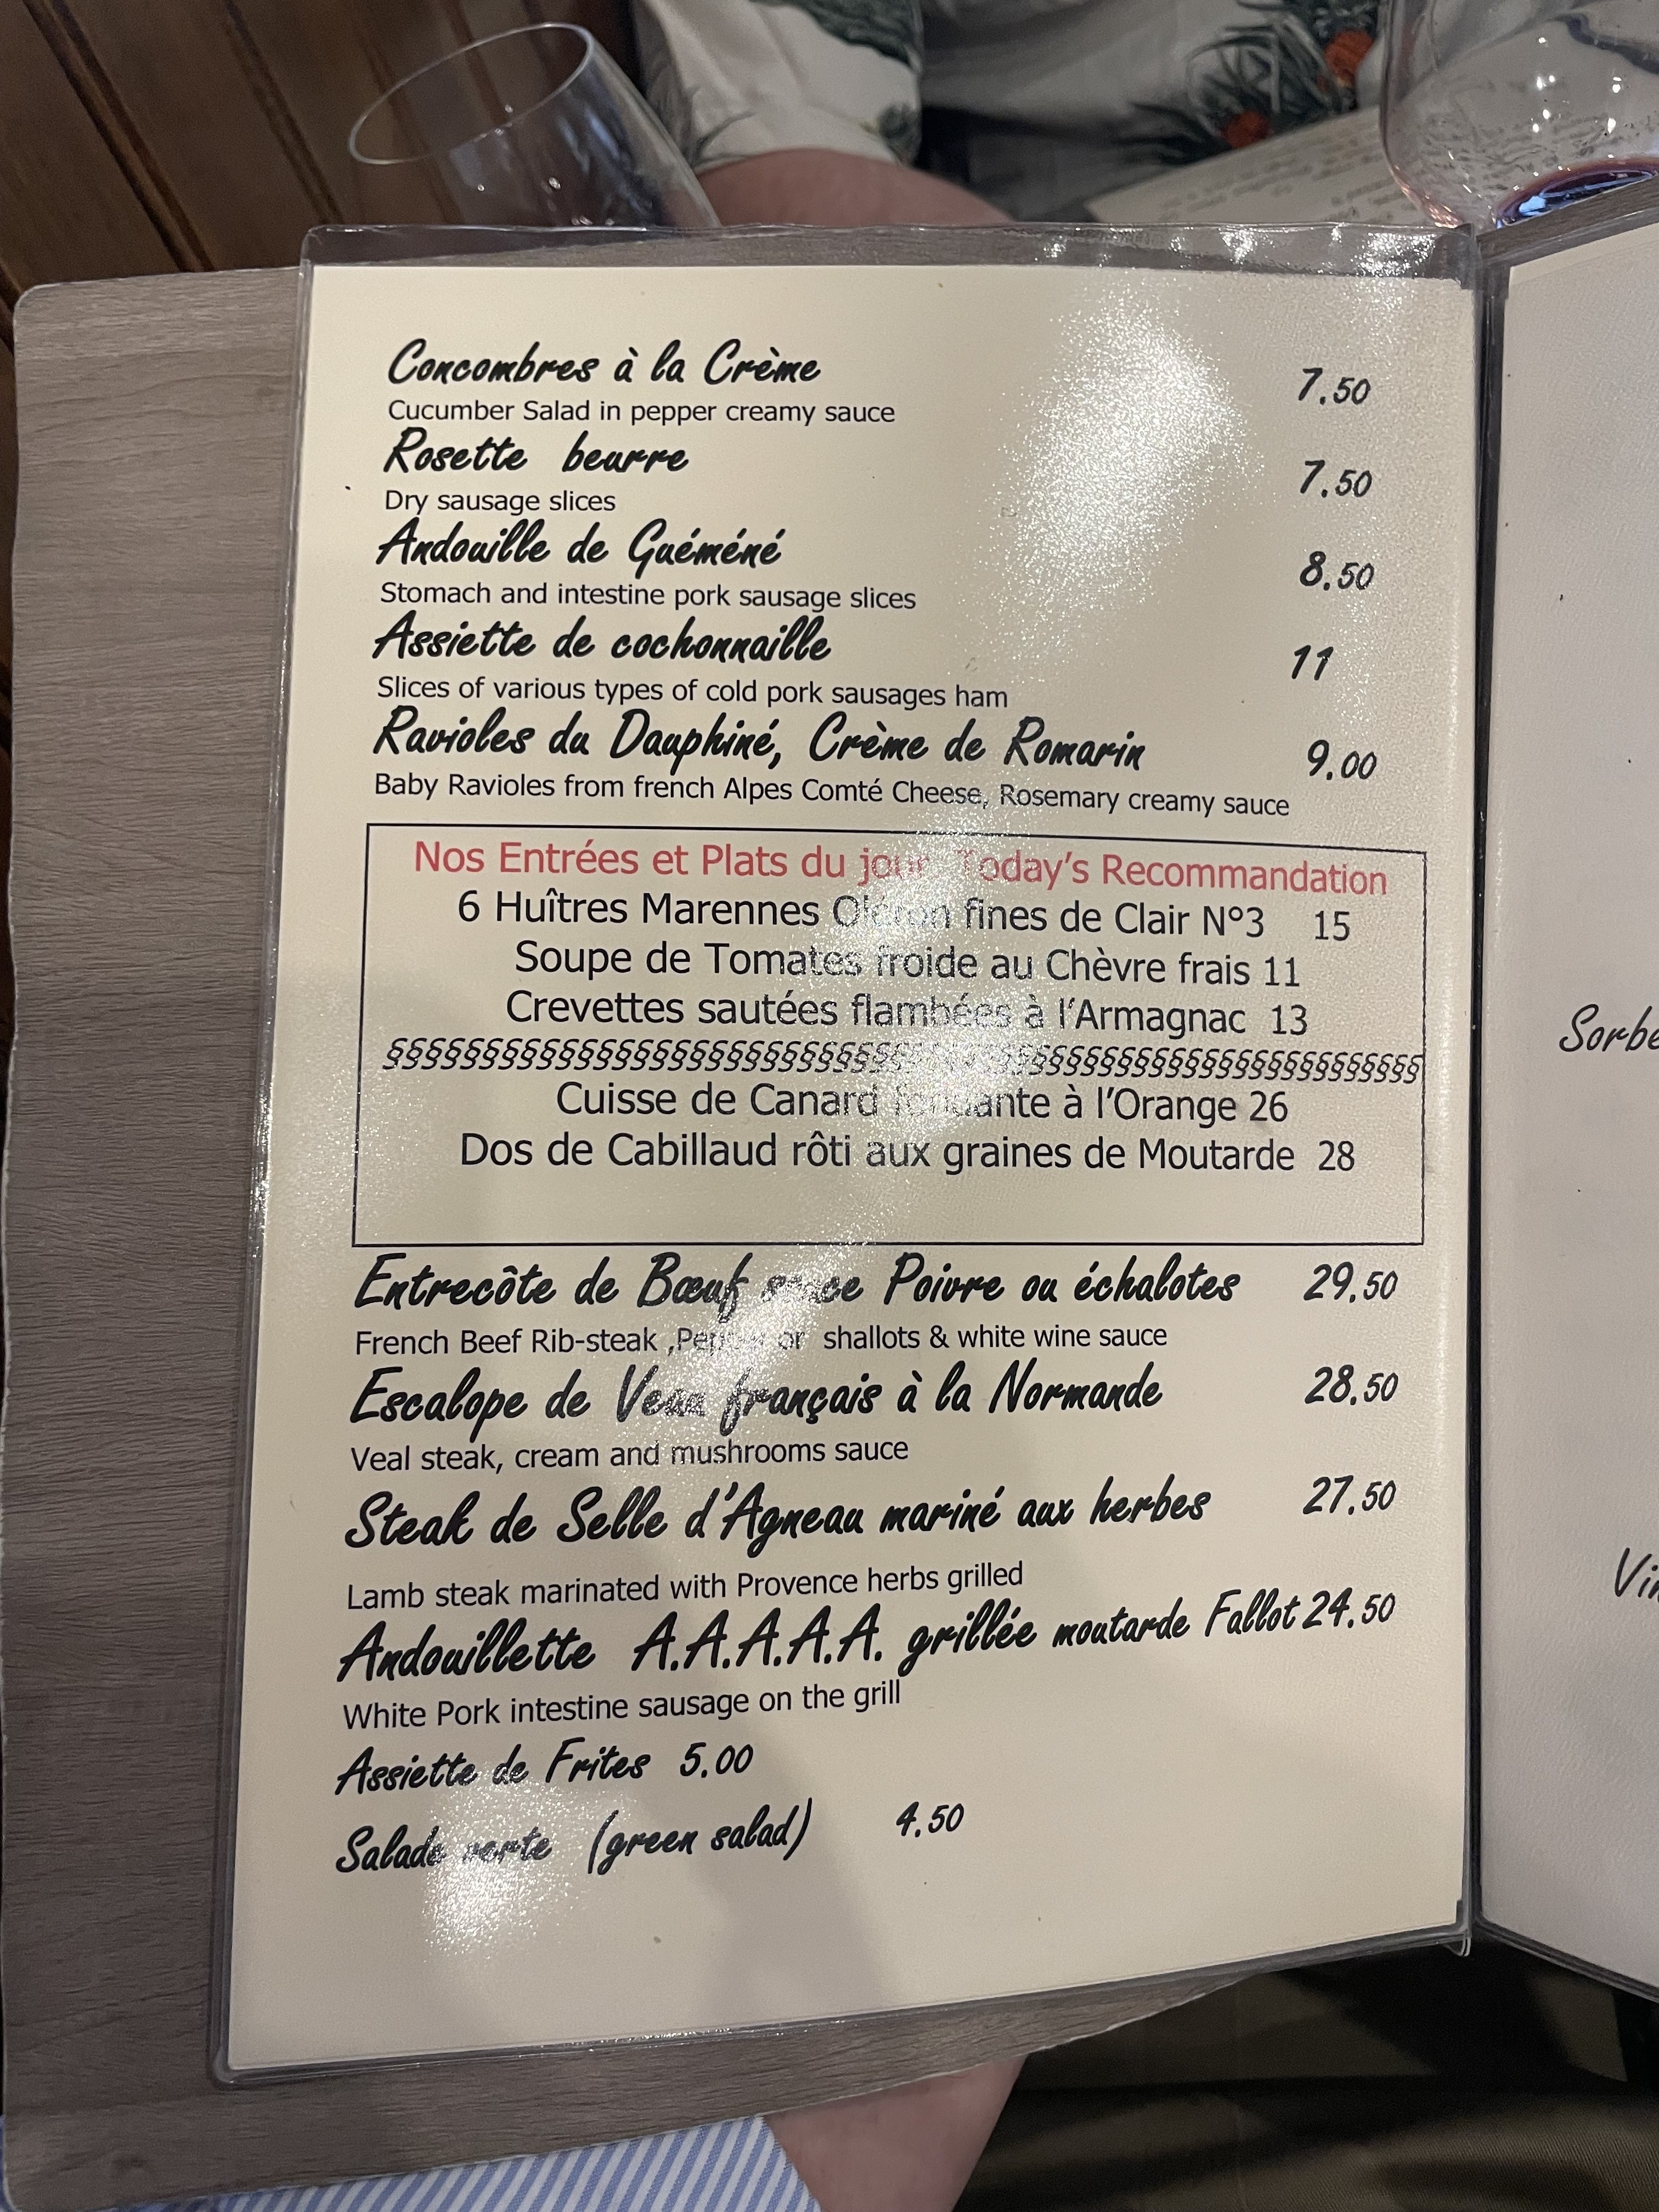 Concombres à la Crème 7.50
Cucumber Salad in pepper creamy sauce
Rosette beurre 7.50
Dry sausage slices
Andouille de Guéméné 8.50
Stomach and intestine pork sausage slices
Assiette de cochonnaille 11
Slices of various types of cold pork sausages ham
Ravioles du Dauphiné, Crème de Romarin 9.00
Baby Ravioles from french Alpes Comté Cheese, Rosemary creamy sauce
Nos Entrées et Plats du jour Today's Recommandation
6 Huîtres Marennes Oléron fines de Clair N°3 15
Soupe de Tomates froide au Chèvre frais 11
Crevettes sautées flambées à l'Armagnac 13
§§§§§§§§§§§§§§§§§§§§§§§§§§§§§§§§§§§§§§§§§§§§§§§§§§§§
Cuisse de Canard fondante à l'Orange 26
Dos de Cabillaud rôti aux graines de Moutarde 28
Entrecôte de Bœuf sauce Poivre ou échalotes 29.50
French Beef Rib-steak ,Pepper or shallots & white wine sauce
Escalope de Veau français à la Normande 28.50
Veal steak, cream and mushrooms sauce
Steak de Selle d'Agneau mariné aux herbes 27.50
Lamb steak marinated with Provence herbs grilled
Andouillette A.A.A.A.A. grillée moutarde Fallot 24.50
White Pork intestine sausage on the grill
Assiette de Frites 5.00
Salade verte (green salad) 4.50